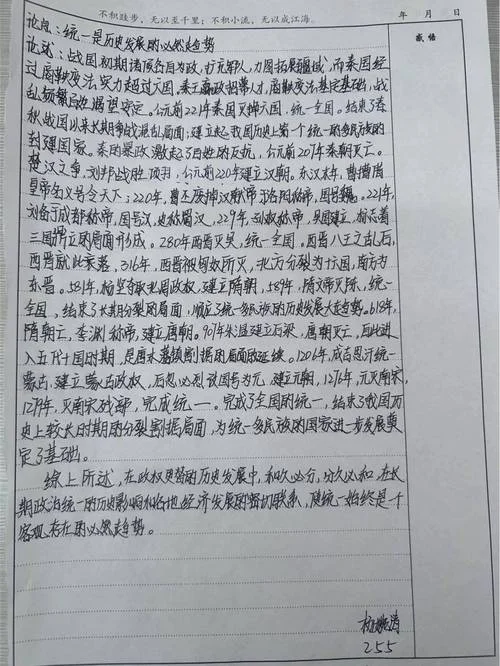 不积跬步，无以至千里；不积小流，无以成江海。
年 月 日
感悟
论点：统一是历史发展的必然趋势
论述：战国初期诸侯各自为政，扩充军队，力图拓展疆域，而秦国经
过商鞅变法实力超过六国，秦王嬴政招募人才，商鞅变法奠定基础，战
乱频繁百姓渴望安定。公元前221年秦国灭掉六国，统一全国。结束了春
秋战国以来长期争战混乱局面；建立起我国历史上第一个统一的多民族的
封建国家。秦的暴政激起了百姓的反抗，公元前207年秦朝灭亡。
楚汉之争，刘邦战胜项羽，公元前220年建立汉朝。东汉末年，曹操借
皇帝名义号令天下；220年，曹丕废掉汉献帝于洛阳称帝，国号魏。221年，
刘备于成都称帝，国号汉，史称蜀汉，229年，孙权称帝，吴国建立，标志着
三国鼎立的局面形成。280年西晋灭吴，统一全国。西晋八王之乱后，
西晋就此衰落，316年，西晋被匈奴所灭，北方分裂为十六国，南方为
东晋。581年，杨坚夺取北周政权，建立隋朝，589年，隋文帝灭陈，统一
全国。结束了长期分裂的局面，顺应了统一多民族的历史发展大趋势。618年，
隋朝亡，李渊称帝，建立唐朝。907年朱温建立后梁，唐朝灭亡，后此进
入五代十国时期，是唐末藩镇割据的局面的延续。1206年，成吉思汗统一
蒙古，建立蒙古政权，后忽必烈改国号为元，建立元朝，1276年，元灭南宋，
1279年，灭南宋残部，完成统一。完成了全国的统一，结束了我国历
史上较长时期的分裂割据局面，为统一多民族的国家进一步发展奠
定了基础。
综上所述，在政权更替的历史发展中，和久必分，分久必和，在长
期政治统一的历史影响和各地经济发展的密切联系，使统一始终是个
客观存在的必然趋势。
255